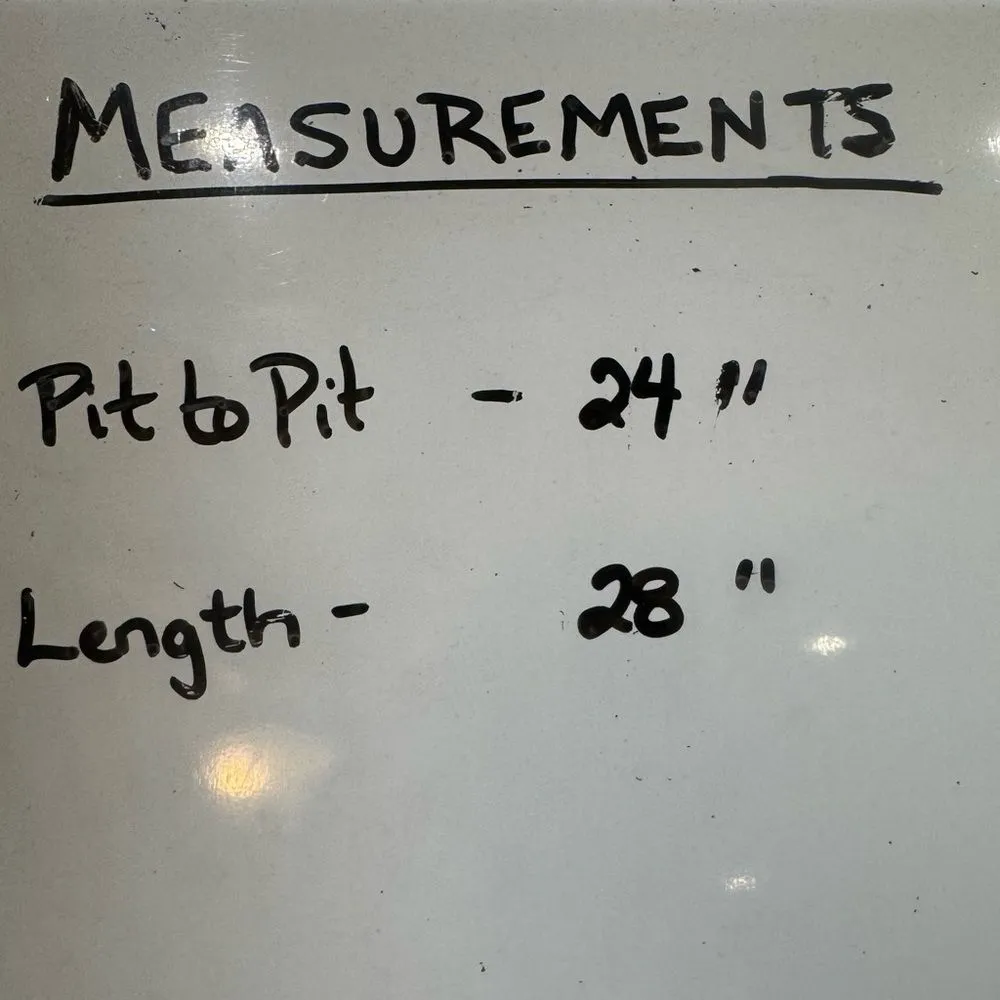 MEASUREMENTS
Pit to Pit - 24 "
Length - 28 "